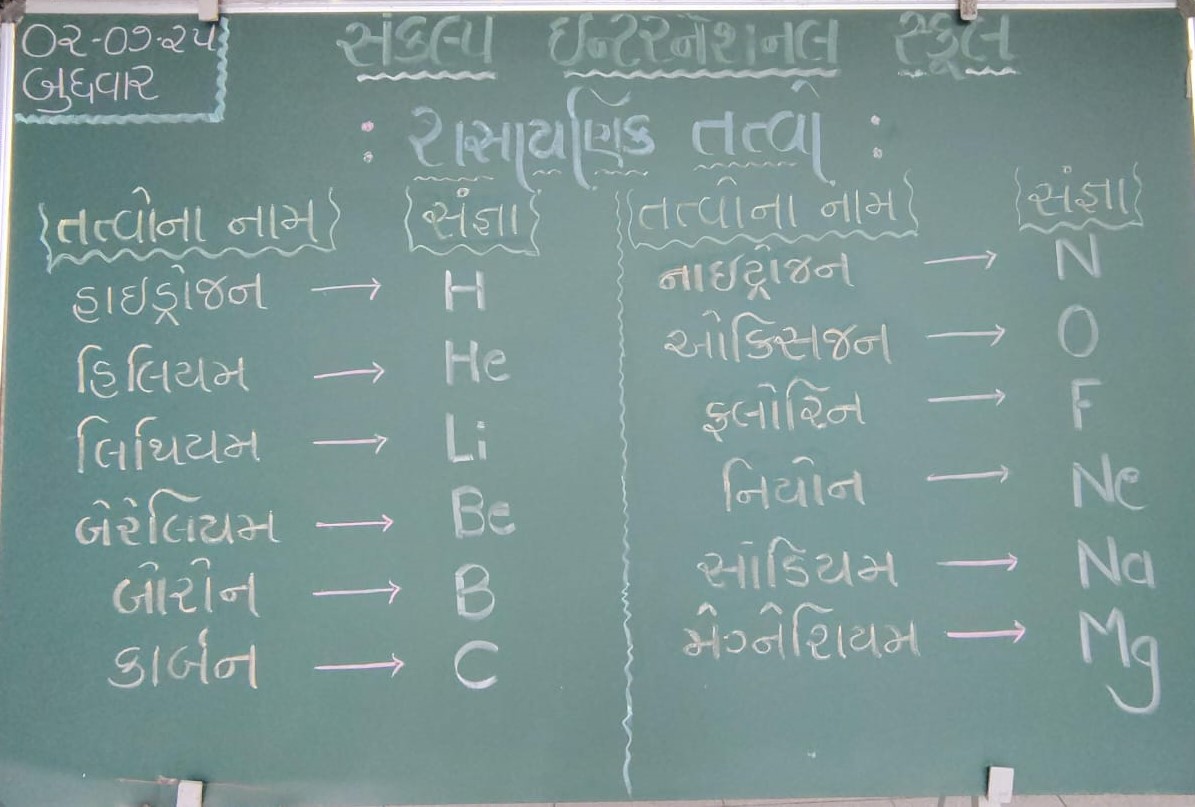 ૦૨-૦૭-૨૫
બુધવાર
સંકલ્પ ઇન્ટરનેશનલ સ્કૂલ
: રાસાયણિક તત્વો :
તત્વોના નામ સંજ્ઞા
હાઇડ્રોજન → H
હિલિયમ → He
લિથિયમ → Li
બેરેલિયમ → Be
બોરોન → B
કાર્બન → C
તત્વોના નામ સંજ્ઞા
નાઇટ્રોજન → N
ઓકિસજન → O
ફલોરિન → F
નિયોન → Ne
સોડિયમ → Na
મેગ્નેશિયમ → Mg